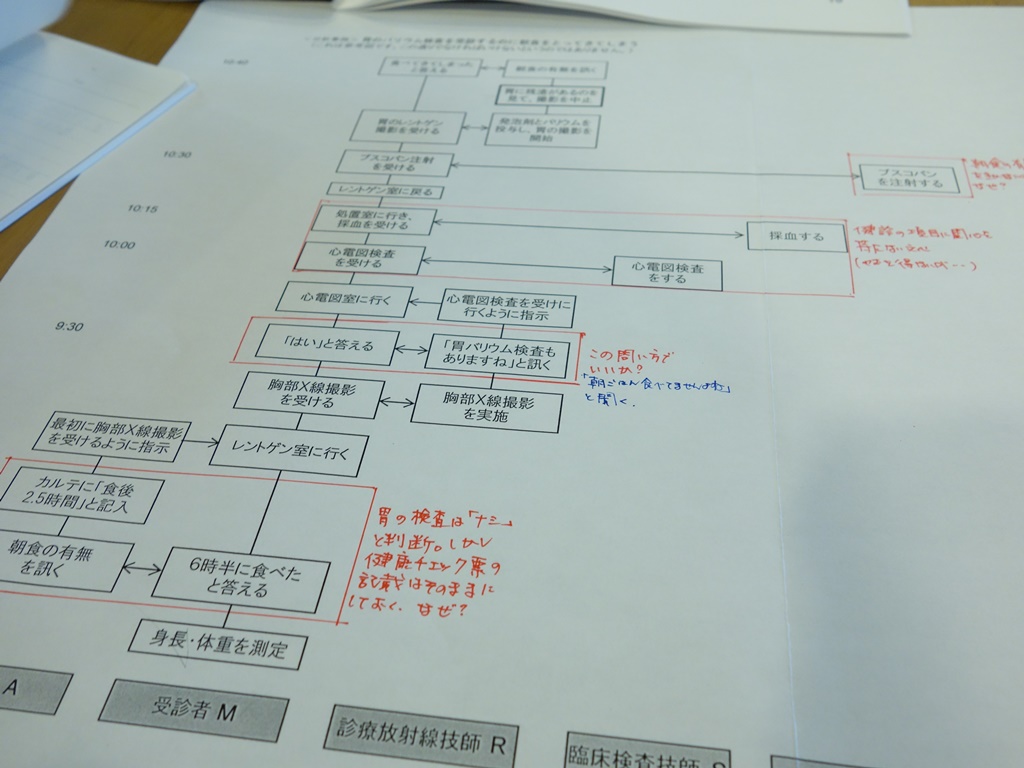 10:40
食べてきてしまった
と答える
朝食の有無を訊く
胃に残渣があるのを
見て、撮影を中止
胃のレントゲン
撮影を受ける
発泡剤とバリウムを
投与し、胃の撮影を
開始
10:30
ブスコパン注射
を受ける
ブスコパン
を注射する
なぜ?
レントゲン室に戻る
10:15
処置室に行き、
採血を受ける
採血する
健診の項目に関心を
10:00
心電図検査
を受ける
心電図検査
をする
心電図室に行く
心電図検査を受けに
行くように指示
9:30
「はい」と答える
「胃バリウム検査も
ありますね」と訊く
この問い方で
いいか?
「朝ごはん食べてませんよね」
と聞く。
胸部X線撮影
を受ける
胸部X線撮影
を実施
最初に胸部X線撮影
を受けるように指示
レントゲン室に行く
カルテに「食後
2.5時間」と記入
朝食の有無
を訊く
6時半に食べた
と答える
胃の検査は「ナシ」
と判断。しかし
健康チェック票の
記載はそのままに
しておく。なぜ?
身長・体重を測定
A
受診者 M
診療放射線技師 R
臨床検査技師